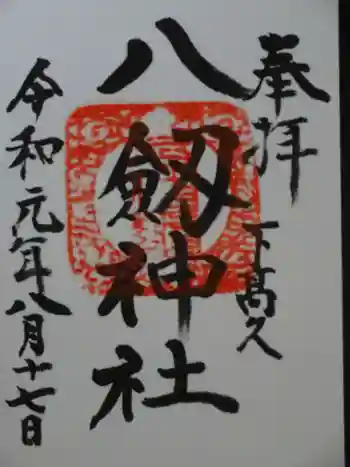 奉拝
下高久
八劔神社
令和元年八月十七日